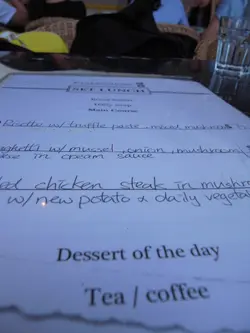 SET LUNCH
Main Course
Risotto w/ truffle paste, mixed mushroom
w/ mussel, onion, mushroom
in cream sauce
chicken steak in mushr
w/ new potato & daily vegeta
Dessert of the day
Tea / coffee